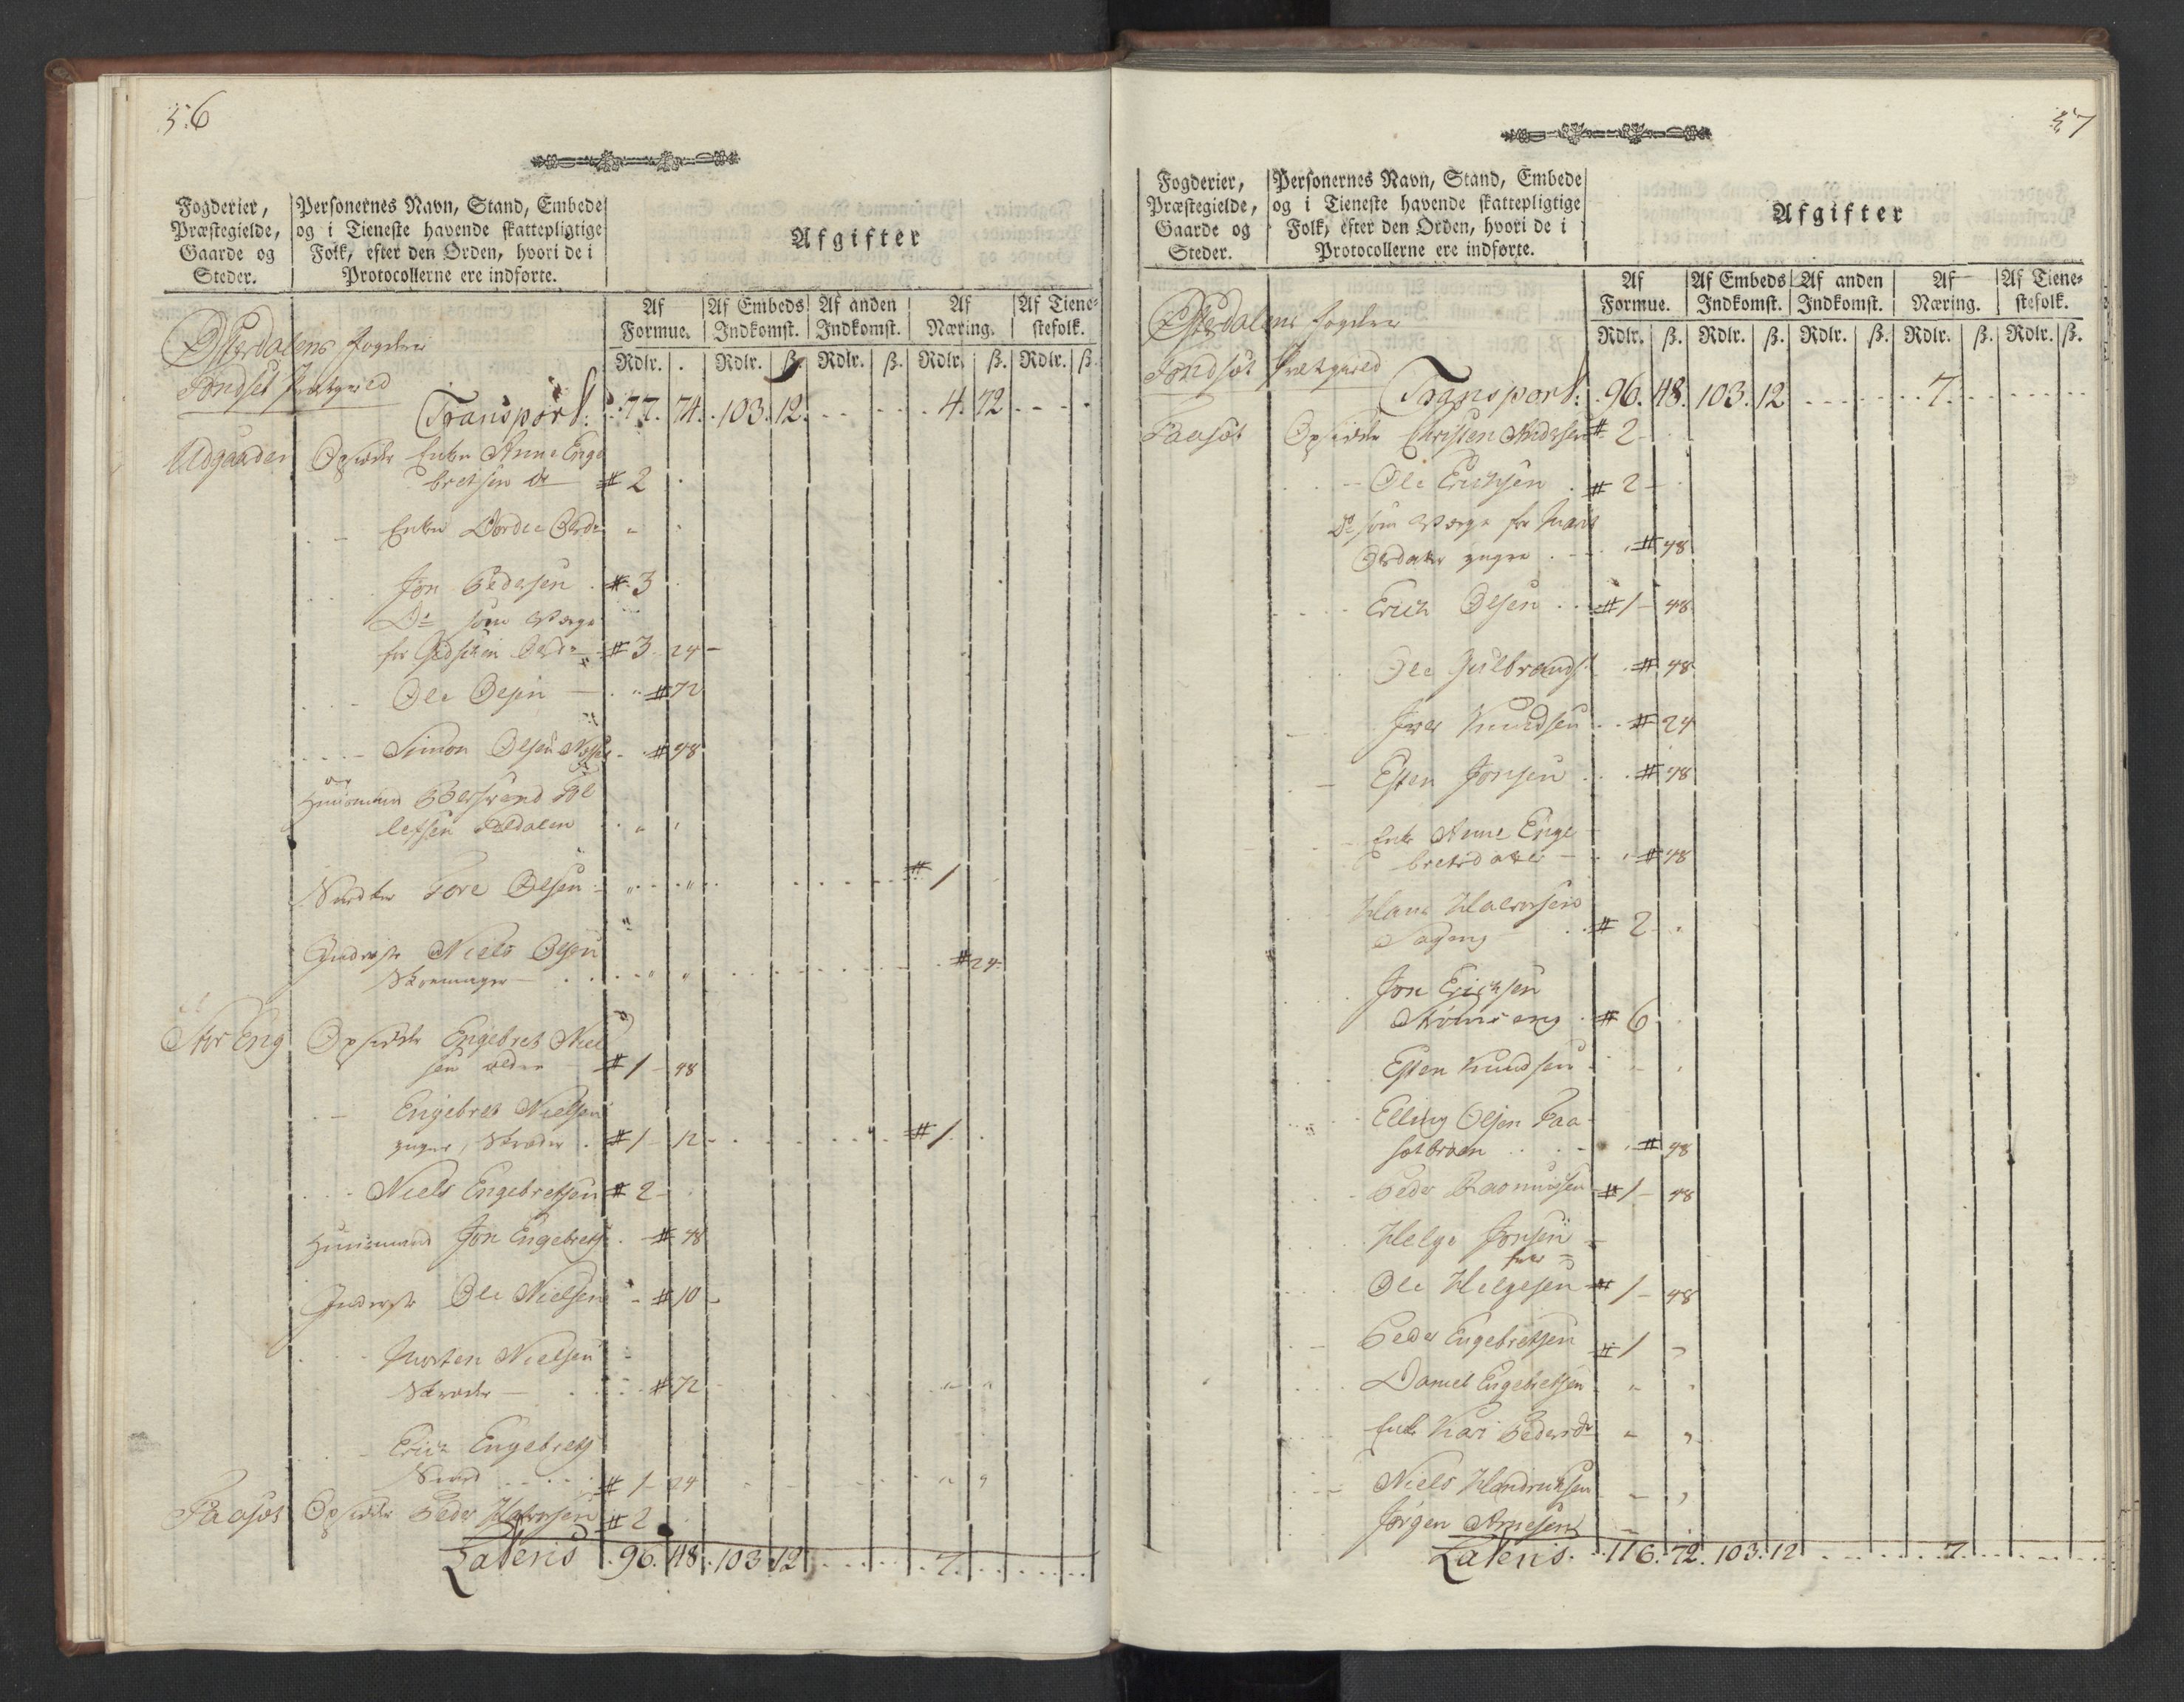 56
Fogderier,
Præstegielde,
Gaarde og
Steder.
Personernes Navn, Stand, Embede
og i Tieneste havende skattepligtige
Folk, efter den Orden, hvori de i
Protocollerne ere indførte.
Afgifter
Af Formue. Af Embeds Indkomst. Af anden Indkomst. Af Næring. Af Tienestefolk.
Rdlr. . Rdlr. ß. Rdlr. ß. Rdlr. ß. Rdlr. ß.
Østerdalens Fogderie
Tøndset Præstegield
Transport: 77. 74. 103. 12. 4. 72
Udgaarden Opsidder Enken Anne Enge
bretsen # 2
Enken Dordie
Jon Pedersen # 3
Do som Værge
for # 3 24
Ole Olsen # 72
Simon Olsen # 48
Huusmand
letsen
Tore Olsen # 1
Inderste Niels Olsen
# 24
Stor Eng Opsidder Engebret Niel
sen ældre # 1 - 48
Engebret Nielsen
yngre, Skræder # 1 - 12 # 1
Niels Engebretsen # 2
Huusmand Jon Engebrets # 48
Inderste Ole Nielsen # 10
Morten Nielsen
Skræder # 72
Erich Engebrets
# 1 - 24
Faaset Opsidder Peder Halvorsen # 2
Lateris 96. 48. 103. 12. 7.
57
Fogderier,
Præstegielde,
Gaarde og
Steder.
Personernes Navn, Stand, Embede
og i Tieneste havende skattepligtige
Folk, efter den Orden, hvori de i
Protocollerne ere indførte.
Afgifter
Af Formue. Af Embeds Indkomst. Af anden Indkomst. Af Næring. Af Tienestefolk.
Rdlr. ß. Rdlr. ß. Rdlr. ß. Rdlr. ß. Rdlr. ß.
Østerdalens Fogderie
Tøndset Præstegield
Transport: 96. 48. 103. 12 7.
Faaset Opsidder Christen Andersen # 2
Ole Erichsen # 2
Do som Værge for Marit
Olsdatter yngre # 48
Erich Olsen # 1 - 48
Ole Gulbrands # 48
Iver Knudsen # 24
Esten Jonsen # 48
Enke Anne Enge
bretsdatter # 48
Hans Halvorsen
# 2
Jon Erichsen
Strømseng # 6
Esten Knudsen
Elling Olsen Faa
setbroen # 48
Peder Rasmussen # 1 - 48
Helge Jonsen
Ole Helgesen # 1 - 48
Peder Engebretsen # 1
Daniel Engebretsen
Enke Kari Pedersdr
Niels Hendrichsen
Jørgen Arnesen
Lateris. 116. 72. 103. 12 7.